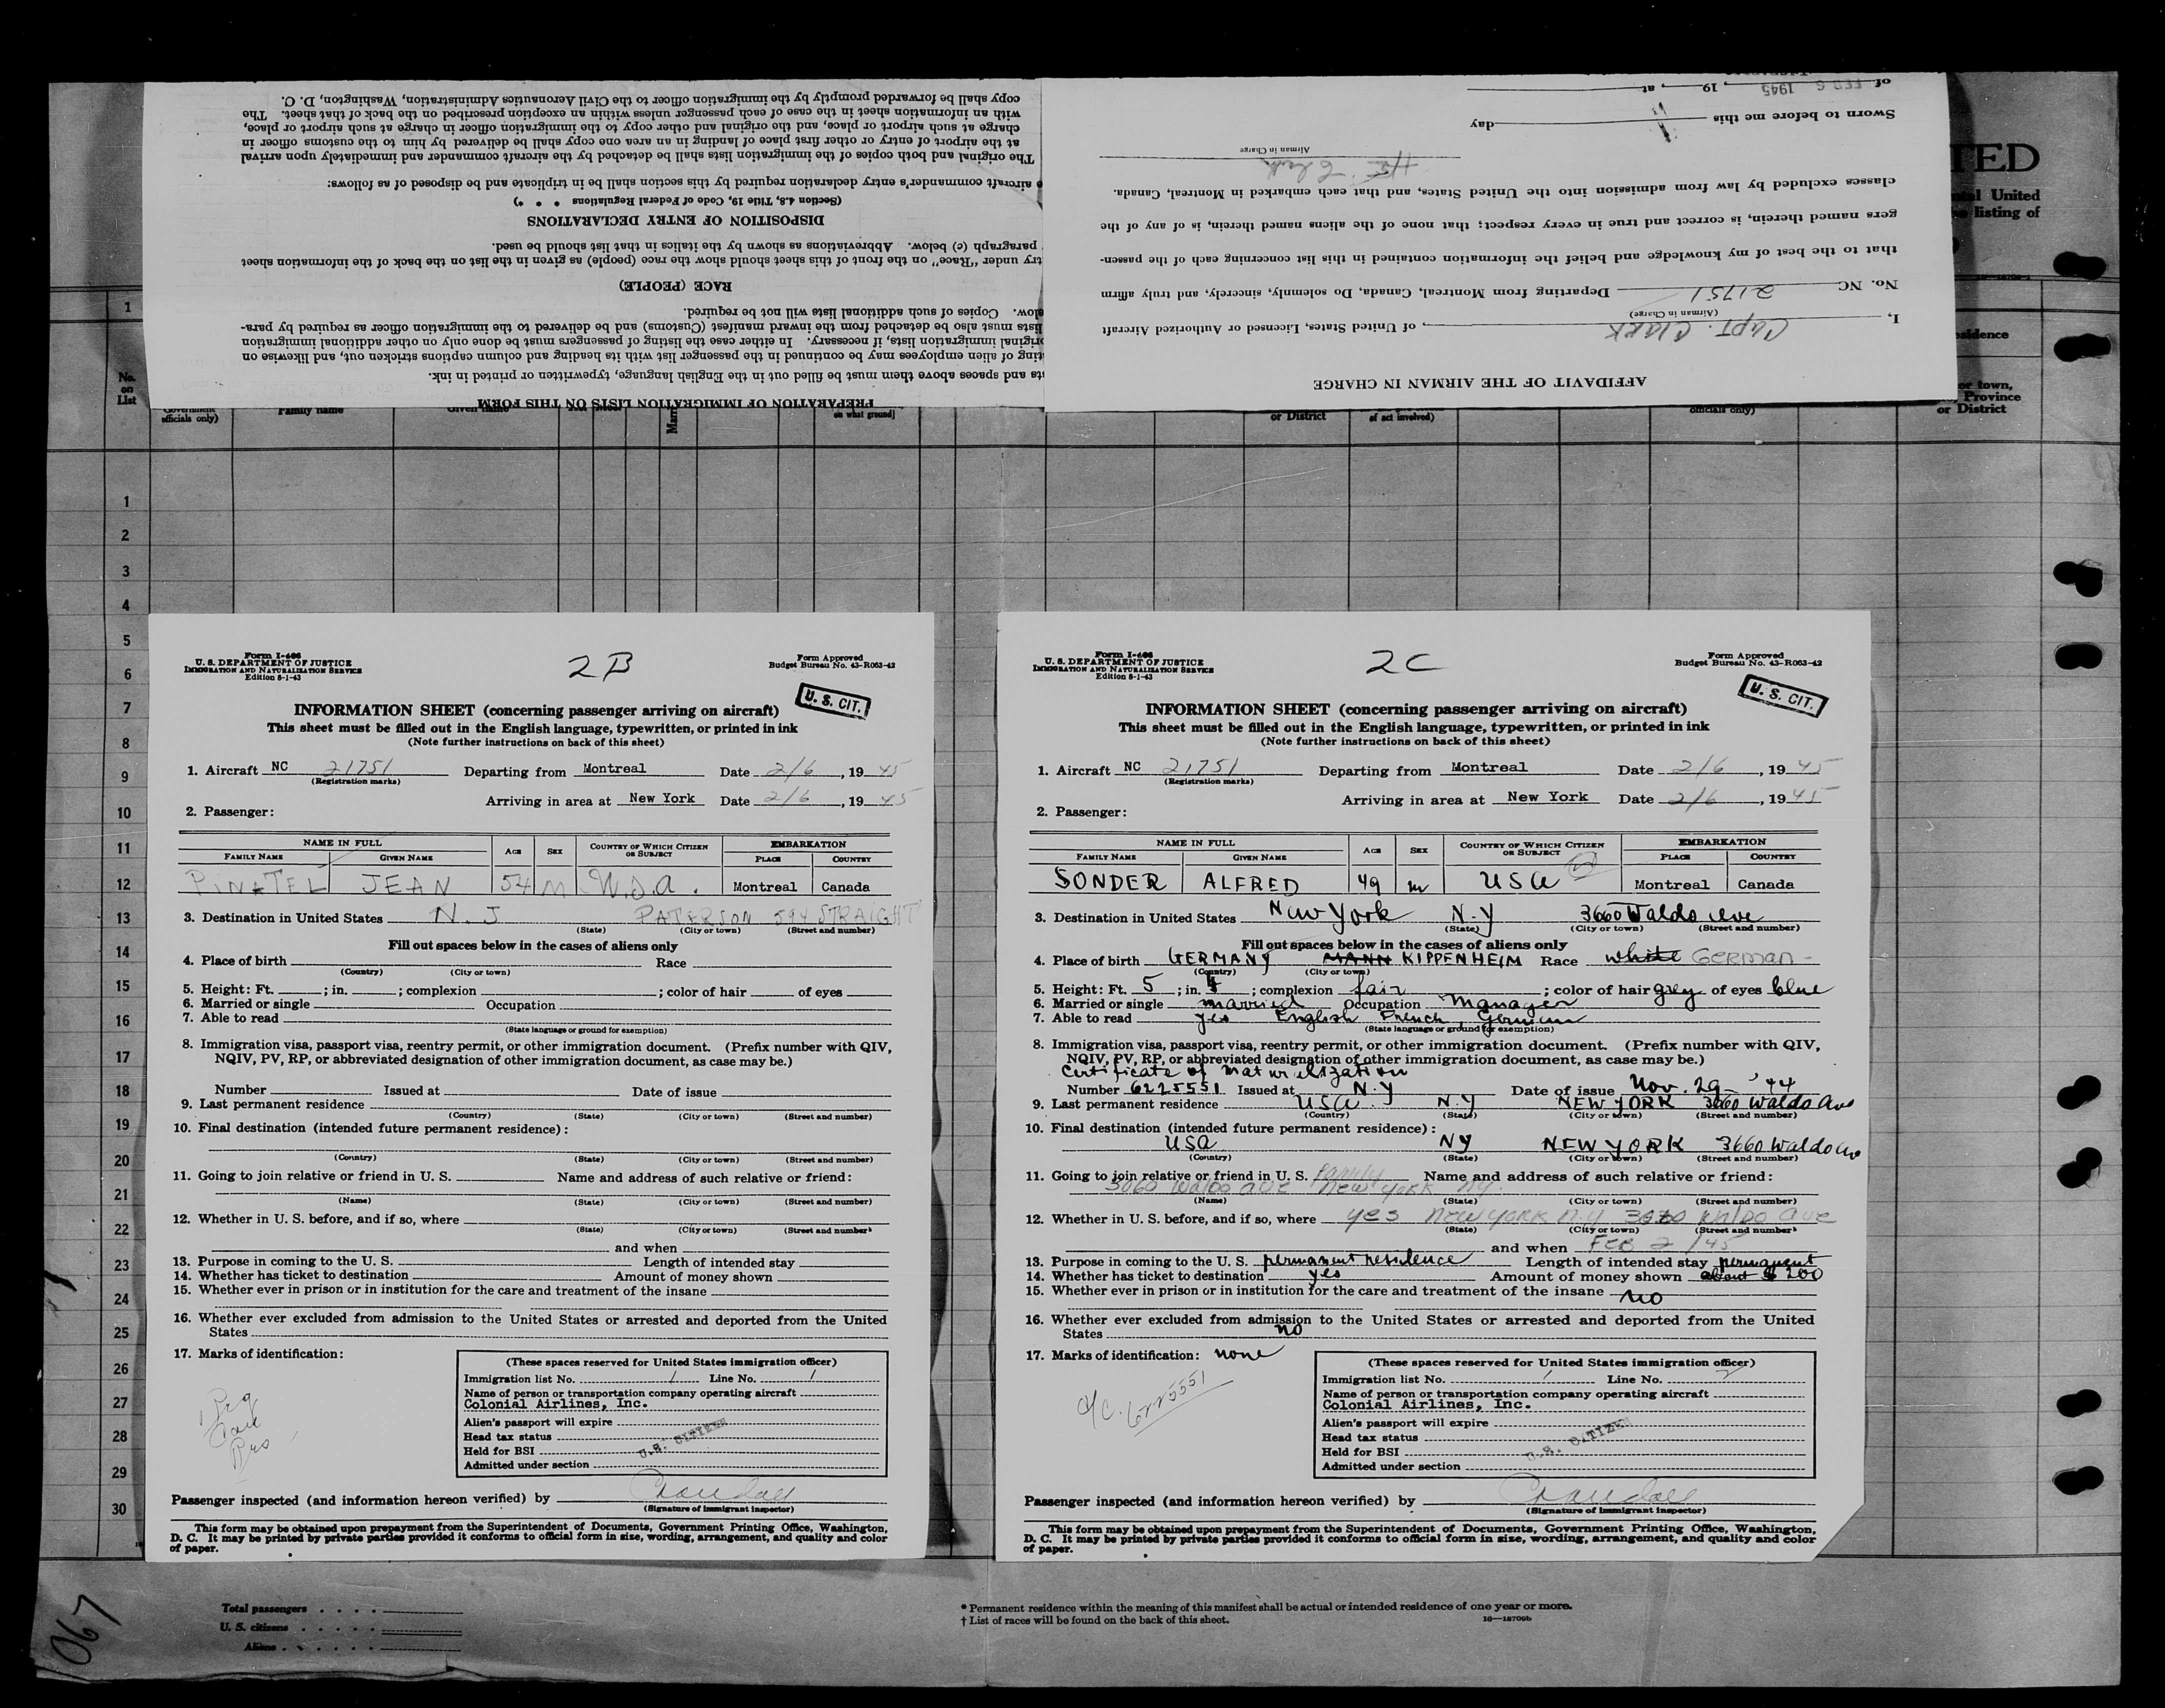 copy shall be forwarded promptly by the immigration officer to the Civil Aeronautics Administration, Washington, D. C.
with an information sheet in the case of each passenger unless within an exception prescribed on the back of that sheet. The
charge at such airport or place, and the original and other copy to the immigration officer in charge at such airport or place,
at the airport of entry or other first place of landing in an area one copy shall be delivered by him to the customs officer in
The original and both copies of the immigration lists shall be detached by the aircraft commander and immediately upon arrival
aircraft commander's entry declaration required by this section shall be in triplicate and be disposed of as follows:
(Section 4.8, Title 19, Code of Federal Regulations * * *)
DISPOSITION OF ENTRY DECLARATIONS
paragraph (c) below. Abbreviations as shown by the italics in that list should be used.
try under "Race" on the front of this sheet should show the race (people) as given in the list on the back of the information sheet
RACE (PEOPLE)
low. Copies of such additional lists will not be required.
lists must also be detached from the inward manifest (Customs) and be delivered to the immigration officer as required by para-
original immigration lists, if necessary. In either case the listing of passengers must be done only on other additional immigration
ting of alien employees may be continued in the passenger list with its heading and column captions stricken out, and likewise on
ts and spaces above them must be filled out in the English language, typewritten or printed in ink.
PREPARATION OF IMMIGRATION LISTS ON THIS FORM
of FEB 6 1945, 19, at
Sworn to before me this day
Airman in Charge
classes excluded by law from admission into the United States, and that each embarked in Montreal, Canada.
gers named therein, is correct and true in every respect; that none of the aliens named therein, is of any of the
that to the best of my knowledge and belief the information contained in this list concerning each of the passen-
No. NC 21751 Departing from Montreal, Canada, Do solemnly, sincerely, and truly affirm
(Airman in Charge)
I, CAPT. CLARK, of United States, Licensed or Authorized Aircraft
AFFIDAVIT OF THE AIRMAN IN CHARGE
TED
United
listing of
1
No.
on
List
Government
officials only)
Family name
Given name
on what ground]
or District
of act involved)
officials only)
sidence
or town,
Province
or District
1
2
3
4
5
6
7
8
9
10
11
12
13
14
15
16
17
18
19
20
21
22
23
24
25
26
27
28
29
30
Form I-466
U. S. DEPARTMENT OF JUSTICE
IMMIGRATION AND NATURALIZATION SERVICE
Edition 8-1-43
2B
Form Approved
Budget Bureau No. 43-R063-42
U. S. CIT.
INFORMATION SHEET (concerning passenger arriving on aircraft)
This sheet must be filled out in the English language, typewritten, or printed in ink
(Note further instructions on back of this sheet)
1. Aircraft NC 21751 Departing from Montreal Date 2/6, 19 45
(Registration marks)
Arriving in area at New York Date 2/6, 19 45
2. Passenger:
NAME IN FULL AGE SEX COUNTRY OF WHICH CITIZEN OR SUBJECT EMBARKATION
FAMILY NAME GIVEN NAME PLACE COUNTRY
PINATEL JEAN 54 M U.S.A. Montreal Canada
3. Destination in United States N. J PATERSON 594 STRAIGHT
(State) (City or town) (Street and number)
Fill out spaces below in the cases of aliens only
4. Place of birth Race
(Country) (City or town)
5. Height: Ft. ; in. ; complexion ; color of hair of eyes
6. Married or single Occupation
7. Able to read
(State language or ground for exemption)
8. Immigration visa, passport visa, reentry permit, or other immigration document. (Prefix number with QIV,
NQIV, PV, RP, or abbreviated designation of other immigration document, as case may be.)
Number Issued at Date of issue
9. Last permanent residence
(Country) (State) (City or town) (Street and number)
10. Final destination (intended future permanent residence):
(Country) (State) (City or town) (Street and number)
11. Going to join relative or friend in U. S. Name and address of such relative or friend:
(Name) (State) (City or town) (Street and number)
12. Whether in U. S. before, and if so, where
(State) (City or town) (Street and number)
and when
13. Purpose in coming to the U. S. Length of intended stay
14. Whether has ticket to destination Amount of money shown
15. Whether ever in prison or in institution for the care and treatment of the insane
16. Whether ever excluded from admission to the United States or arrested and deported from the United
States
17. Marks of identification:
(These spaces reserved for United States immigration officer)
Immigration list No. 1 Line No. 1
Name of person or transportation company operating aircraft
Colonial Airlines, Inc.
Alien's passport will expire
Head tax status
Held for BSI
Admitted under section
U.S. CITIZEN
Passenger inspected (and information hereon verified) by Crandall
(Signature of immigrant inspector)
This form may be obtained upon prepayment from the Superintendent of Documents, Government Printing Office, Washington,
D. C. It may be printed by private parties provided it conforms to official form in size, wording, arrangement, and quality and color
of paper.
Form I-466
U. S. DEPARTMENT OF JUSTICE
IMMIGRATION AND NATURALIZATION SERVICE
Edition 8-1-43
2C
Form Approved
Budget Bureau No. 43-R063-42
U. S. CIT.
INFORMATION SHEET (concerning passenger arriving on aircraft)
This sheet must be filled out in the English language, typewritten, or printed in ink
(Note further instructions on back of this sheet)
1. Aircraft NC 21751 Departing from Montreal Date 2/6, 19 45
(Registration marks)
Arriving in area at New York Date 2/6, 19 45
2. Passenger:
NAME IN FULL AGE SEX COUNTRY OF WHICH CITIZEN OR SUBJECT EMBARKATION
FAMILY NAME GIVEN NAME PLACE COUNTRY
SONDER ALFRED 49 m USA Montreal Canada
3. Destination in United States New York N.Y 3660 Waldo Ave
(State) (City or town) (Street and number)
Fill out spaces below in the cases of aliens only
4. Place of birth GERMANY MANN KIPPENHEIM Race white GERMAN
(Country) (City or town)
5. Height: Ft. 5 ; in. ; complexion fair ; color of hair grey of eyes blue
6. Married or single married Occupation Manager
7. Able to read yes English French German
(State language or ground for exemption)
8. Immigration visa, passport visa, reentry permit, or other immigration document. (Prefix number with QIV,
NQIV, PV, RP, or abbreviated designation of other immigration document, as case may be.)
Certificate of Naturalization
Number 6225551 Issued at N.Y Date of issue Nov. 29 - '44
9. Last permanent residence USA. N.Y NEW YORK 3660 Waldo Ave
(Country) (State) (City or town) (Street and number)
10. Final destination (intended future permanent residence):
USA NY NEW YORK 3660 Waldo Av
(Country) (State) (City or town) (Street and number)
11. Going to join relative or friend in U. S. Family Name and address of such relative or friend:
3060 Waldo ave New York NY.
(Name) (State) (City or town) (Street and number)
12. Whether in U. S. before, and if so, where yes NEW YORK N.Y Waldo ave
(State) (City or town) (Street and number)
and when FEB 2 /45
13. Purpose in coming to the U. S. permanent residence Length of intended stay permanent
14. Whether has ticket to destination yes Amount of money shown about $ 200
15. Whether ever in prison or in institution for the care and treatment of the insane no
16. Whether ever excluded from admission to the United States or arrested and deported from the United
States no
17. Marks of identification: none
C/C. 6225551
(These spaces reserved for United States immigration officer)
Immigration list No. 1 Line No. 2
Name of person or transportation company operating aircraft
Colonial Airlines, Inc.
Alien's passport will expire
Head tax status
Held for BSI
Admitted under section
U.S. CITIZEN
Passenger inspected (and information hereon verified) by Crandall
(Signature of immigrant inspector)
This form may be obtained upon prepayment from the Superintendent of Documents, Government Printing Office, Washington,
D. C. It may be printed by private parties provided it conforms to official form in size, wording, arrangement, and quality and color
of paper.
067
Total passengers
U. S. citizens
Aliens
* Permanent residence within the meaning of this manifest shall be actual or intended residence of one year or more.
† List of races will be found on the back of this sheet.
16—18709b